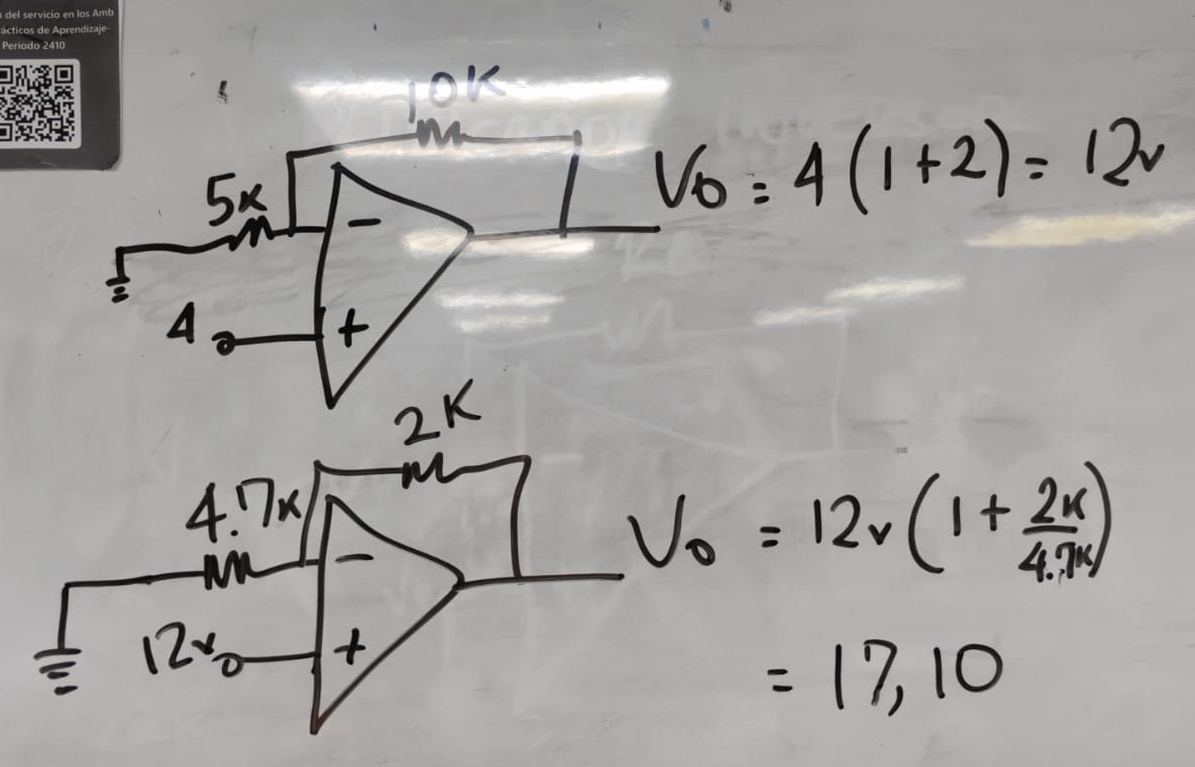 del servicio en los Amb
ácticos de Aprendizaje-
Periodo 2410
10K
5K
-
4
+
Vo = 4 (1+2) = 12v
2K
4.7K
-
12v
+
Vo = 12v (1 + 2K/4.7K)
= 17,10